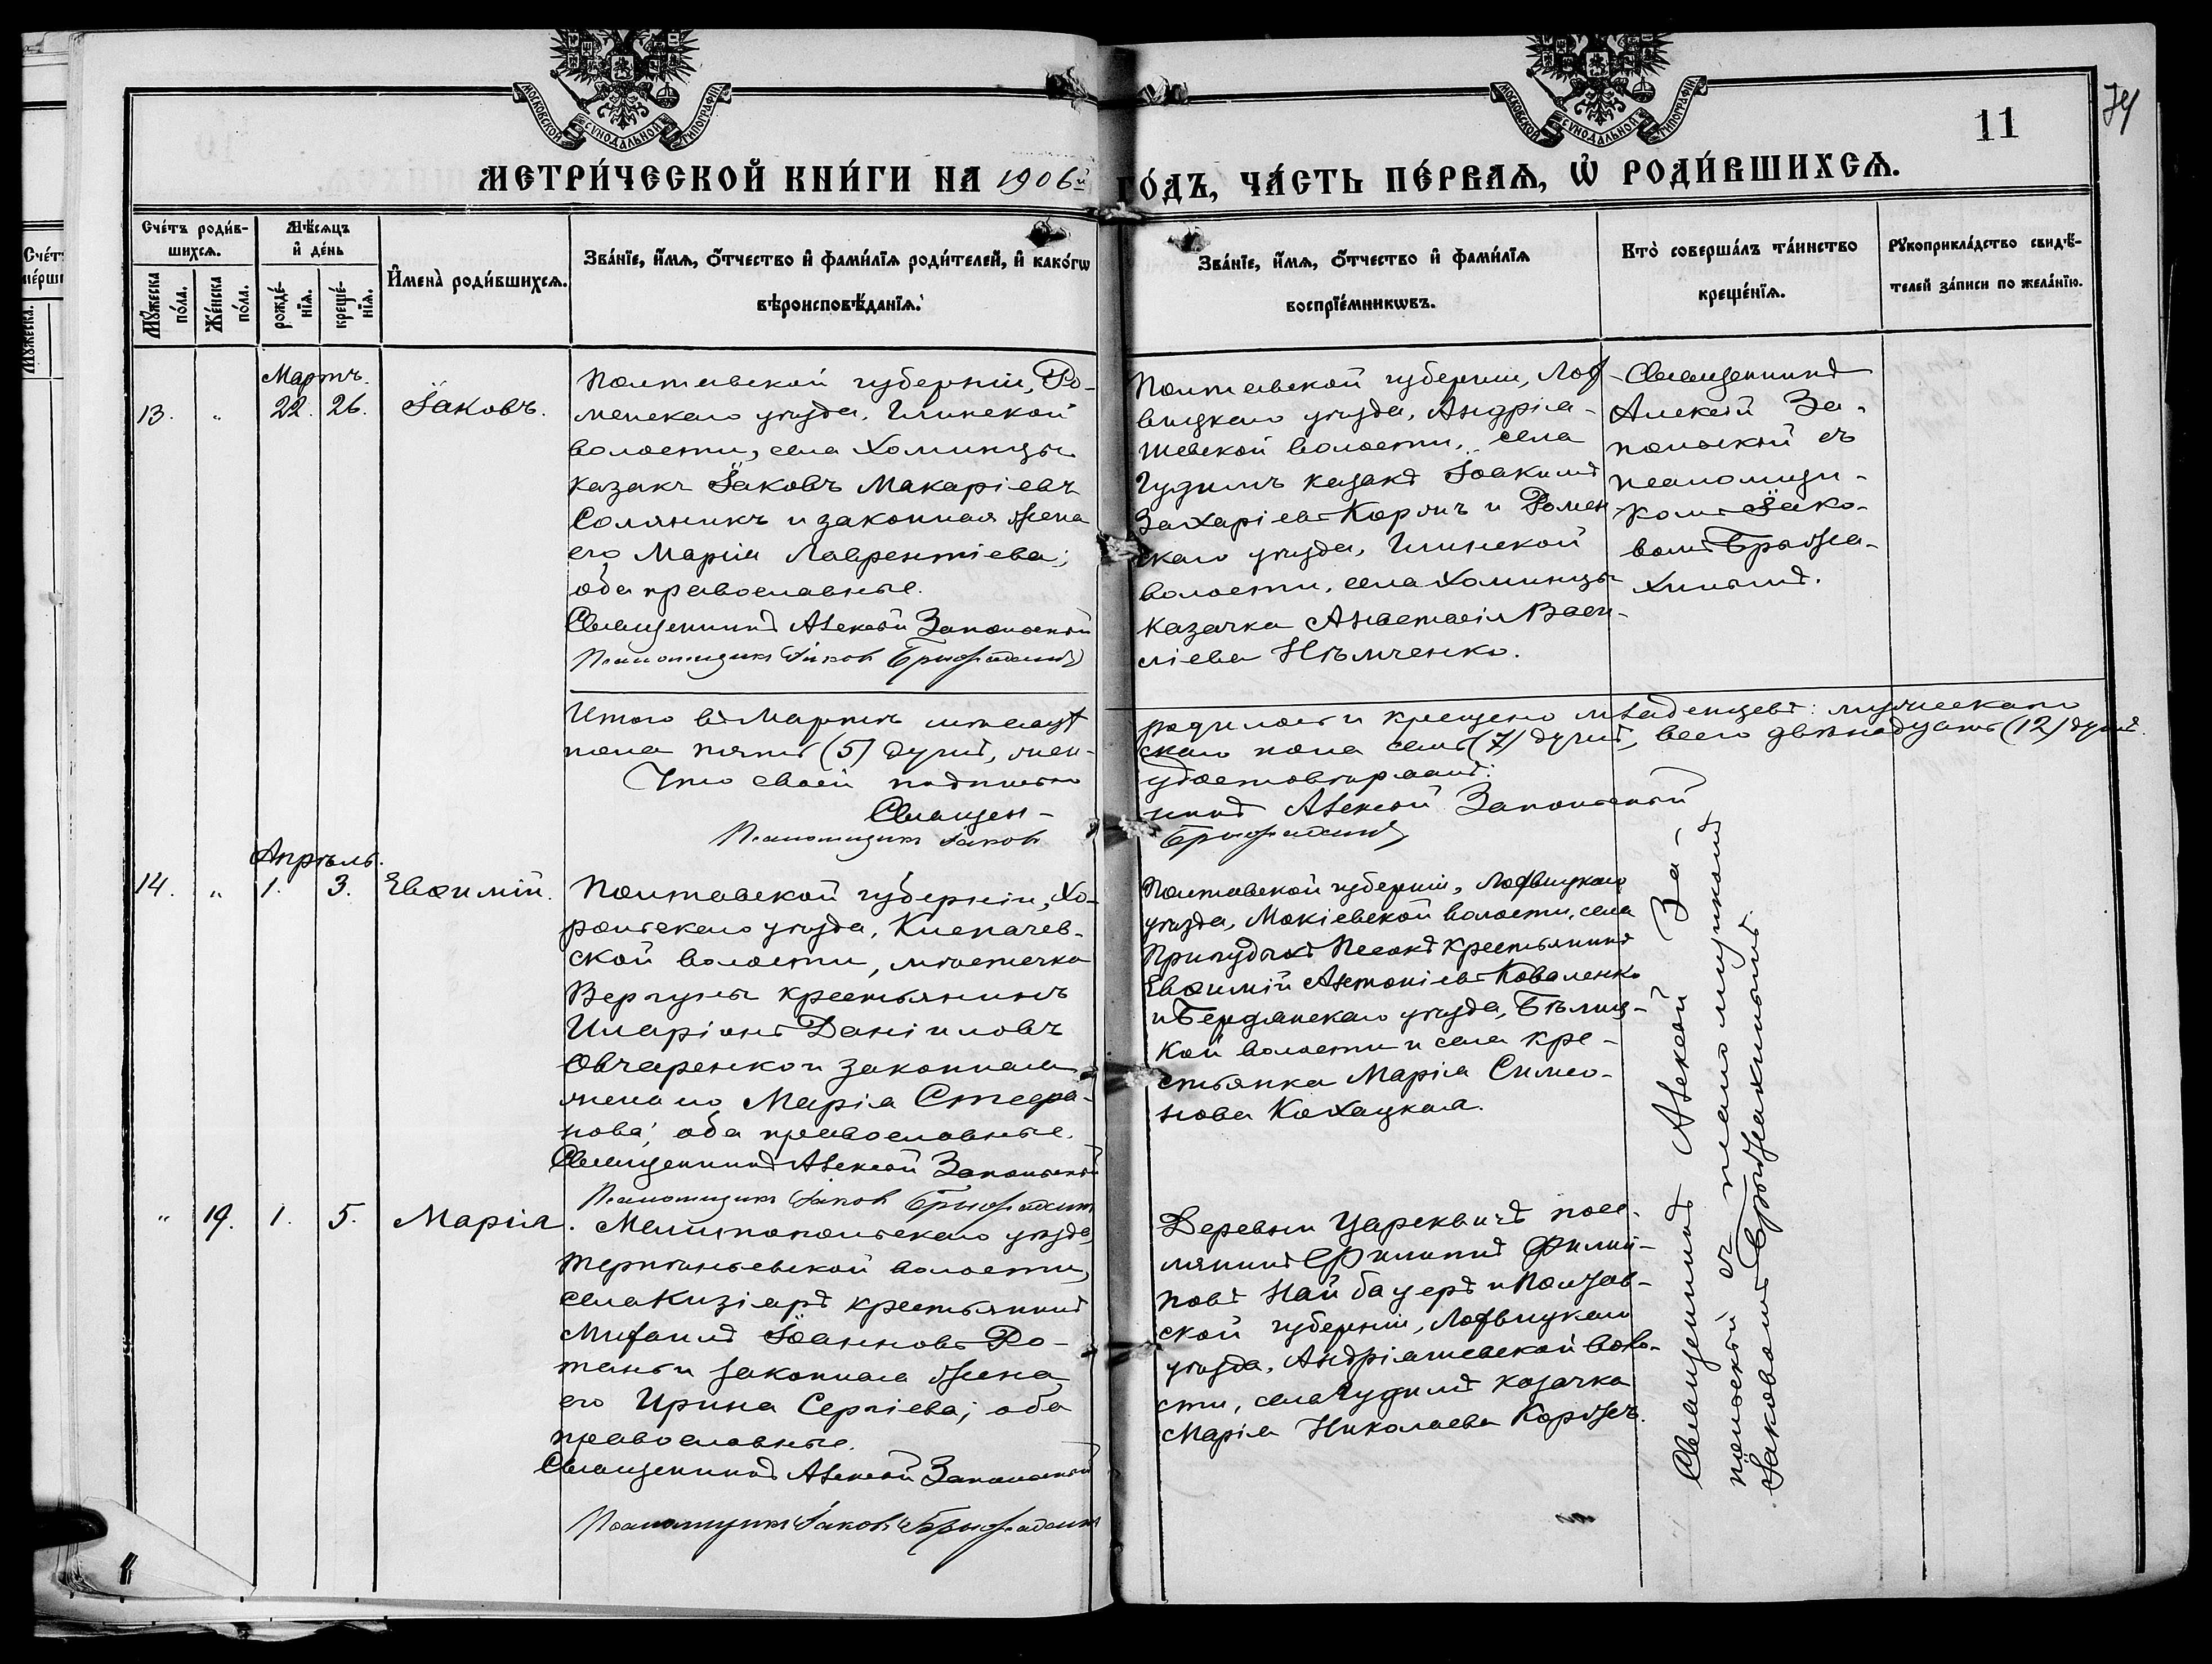 МОСКОВСКОЙ СѴНОДАЛЬНОЙ ТИПОГРАФІИ
МОСКОВСКОЙ СѴНОДАЛЬНОЙ ТИПОГРАФІИ
11
74
МЕТРИ́ЧЕСКОЙ КНИ́ГИ НА 1906й ГО́ДЪ, ЧА́СТЬ ПЕ́РВАѦ, Ѡ҆ РОДИ́ВШИХСѦ.
Сче́тъ роди́в-
шихсѧ.
Мꙋ́жеска по́ла.
Же́нска по́ла.
Мѣ́сѧцъ
и҆ де́нь
рожде́-
нїѧ.
креще́-
нїѧ.
И҆мена̀ роди́вшихсѧ.
Зва́нїе, и҆́мѧ, ѻ҆́тчество и҆ фами́лїѧ роди́телей, и҆ како́гѡ
вѣроисповѣ́данїѧ.
Зва́нїе, и҆́мѧ, ѻ҆́тчество и҆ фами́лїѧ
воспрїе́мникѡвъ.
Кто̀ соверша́лъ та́инство
креще́нїѧ.
Рꙋкоприкла́дство свидѣ́-
телей за́писи по жела́нїю.
Мартъ.
13.
"
22.
26.
Іаковъ.
Полтавской губерніи, Ро-
менскаго уѣзда, Глинской
волости, села Хоминцы
казакъ Іаковъ Макаріевъ
Соляникъ и законная жена
его Марія Лаврентіева;
оба православные.
Священникъ Алексѣй Запольскій
Псаломщикъ Іаковъ
Полтавской губерніи, Лох-
вицкаго уѣзда, Андрія-
шевской волости, села
Гудимъ казакъ Іоакимъ
Захаріевъ Коржъ и Ромен
скаго уѣзда, Глинской
волости, села Хоминцы
казачка Анастасія Васи-
ліева Нѣмченко.
Священникъ
Алексѣй За-
польскій съ
псаломщи-
комъ Іако-
вомъ
Итого въ Мартѣ мѣсяцѣ
родилось и крещено младенцевъ: мужескаго
пола пять (5) душъ, жен-
скаго пола семь (7) душъ, всего двѣнадцать (12) душъ.
Что своей подписью
удостовѣряемъ:
Священ-
никъ Алексѣй Запольскій
Псаломщикъ Іаковъ
Апрѣль.
14.
"
1.
3.
Евѳимій.
Полтавской губерніи, Хо-
рольскаго уѣзда, Клепачев-
ской волости, мѣстечка
Вергуны крестьянинъ
Иларіонъ Даніиловъ
Овчаренко и законная
жена его Марія Стефа-
нова; оба православные.
Священникъ Алексѣй Запольскій
Псаломщикъ Іаковъ
Полтавской губерніи, Лохвицкаго
уѣзда, Мокіевской волости, села
Песокъ крестьянинъ
Евѳимій Антоніевъ Коваленко
и Бердянскаго уѣзда,
кой волости и села кре-
стьянка Марія Симео-
нова Кохацкая.
"
19.
1.
5.
Марія.
Мелитопольскаго уѣзда,
Терпѣньевской волости,
села Кизіяръ крестьянинъ
Михаилъ Іоанновъ Ро-
мань и законная жена
его Ирина Сергіева; оба
православные.
Священникъ Алексѣй Запольскій
Псаломщикъ Іаковъ
Деревни посе-
лянинъ Филиппъ Филип-
повъ Найбауеръ и Полтав-
ской губерніи, Лохвицкаго
уѣзда, Андріяшевской воло-
сти, села Гудимъ казачка
Марія Николаева Коржъ.
Священникъ Алексѣй За-
польскій съ псаломщикомъ
Іаковомъ